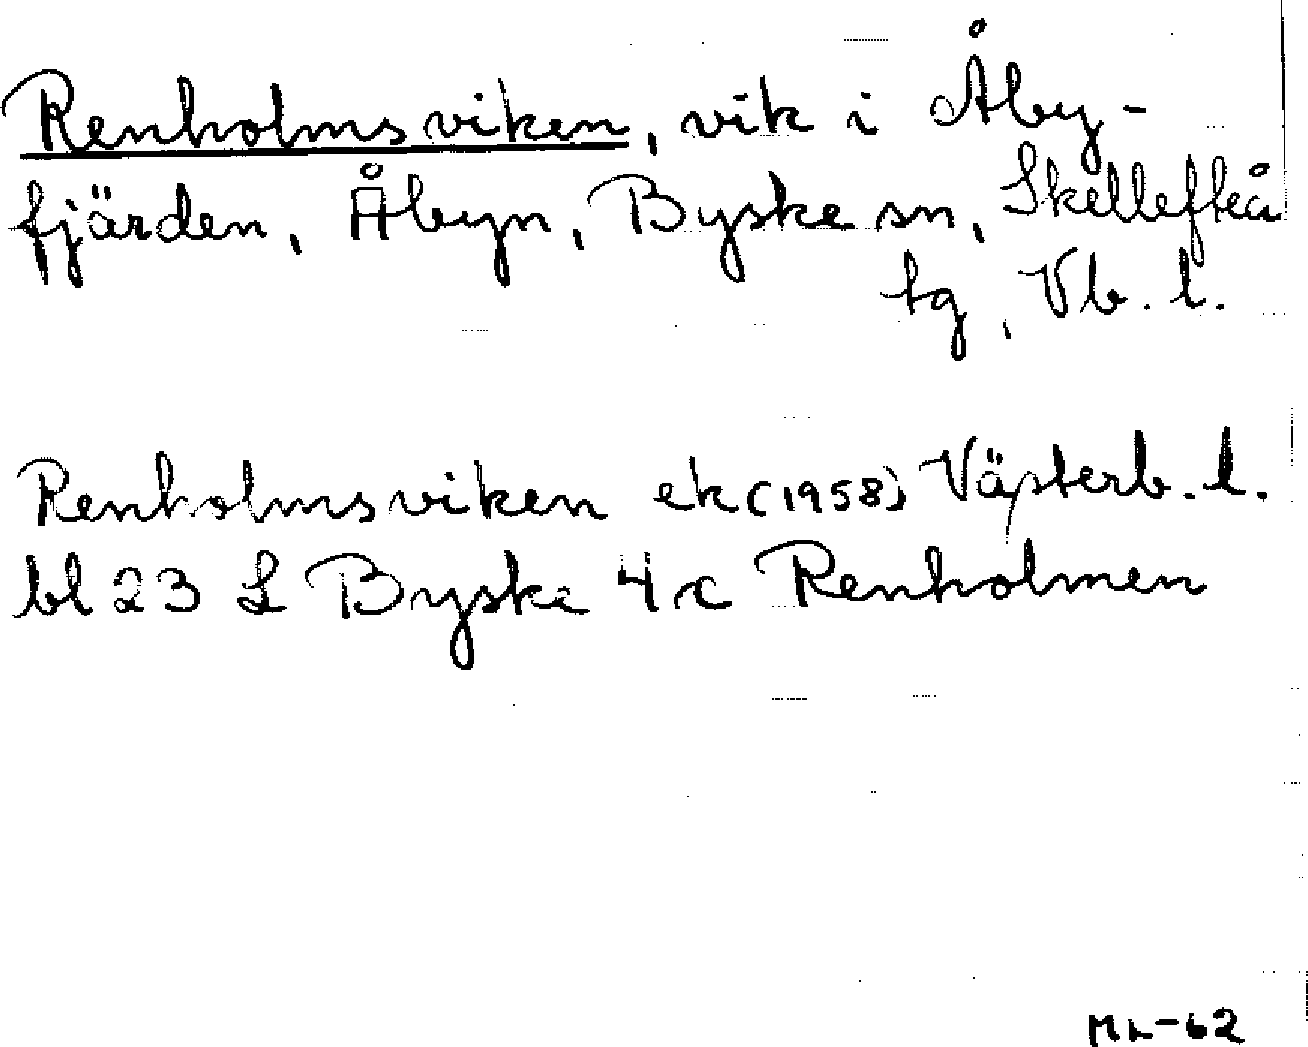 Renholmsviken, vik i Åby-
fjärden, Åbyn, Byske sn, Skellefteå
tg, Vb. l.
Renholmsviken ek (1958) Västerb. l.
bl 23 L Byske 4 c Renholmen
ML-62